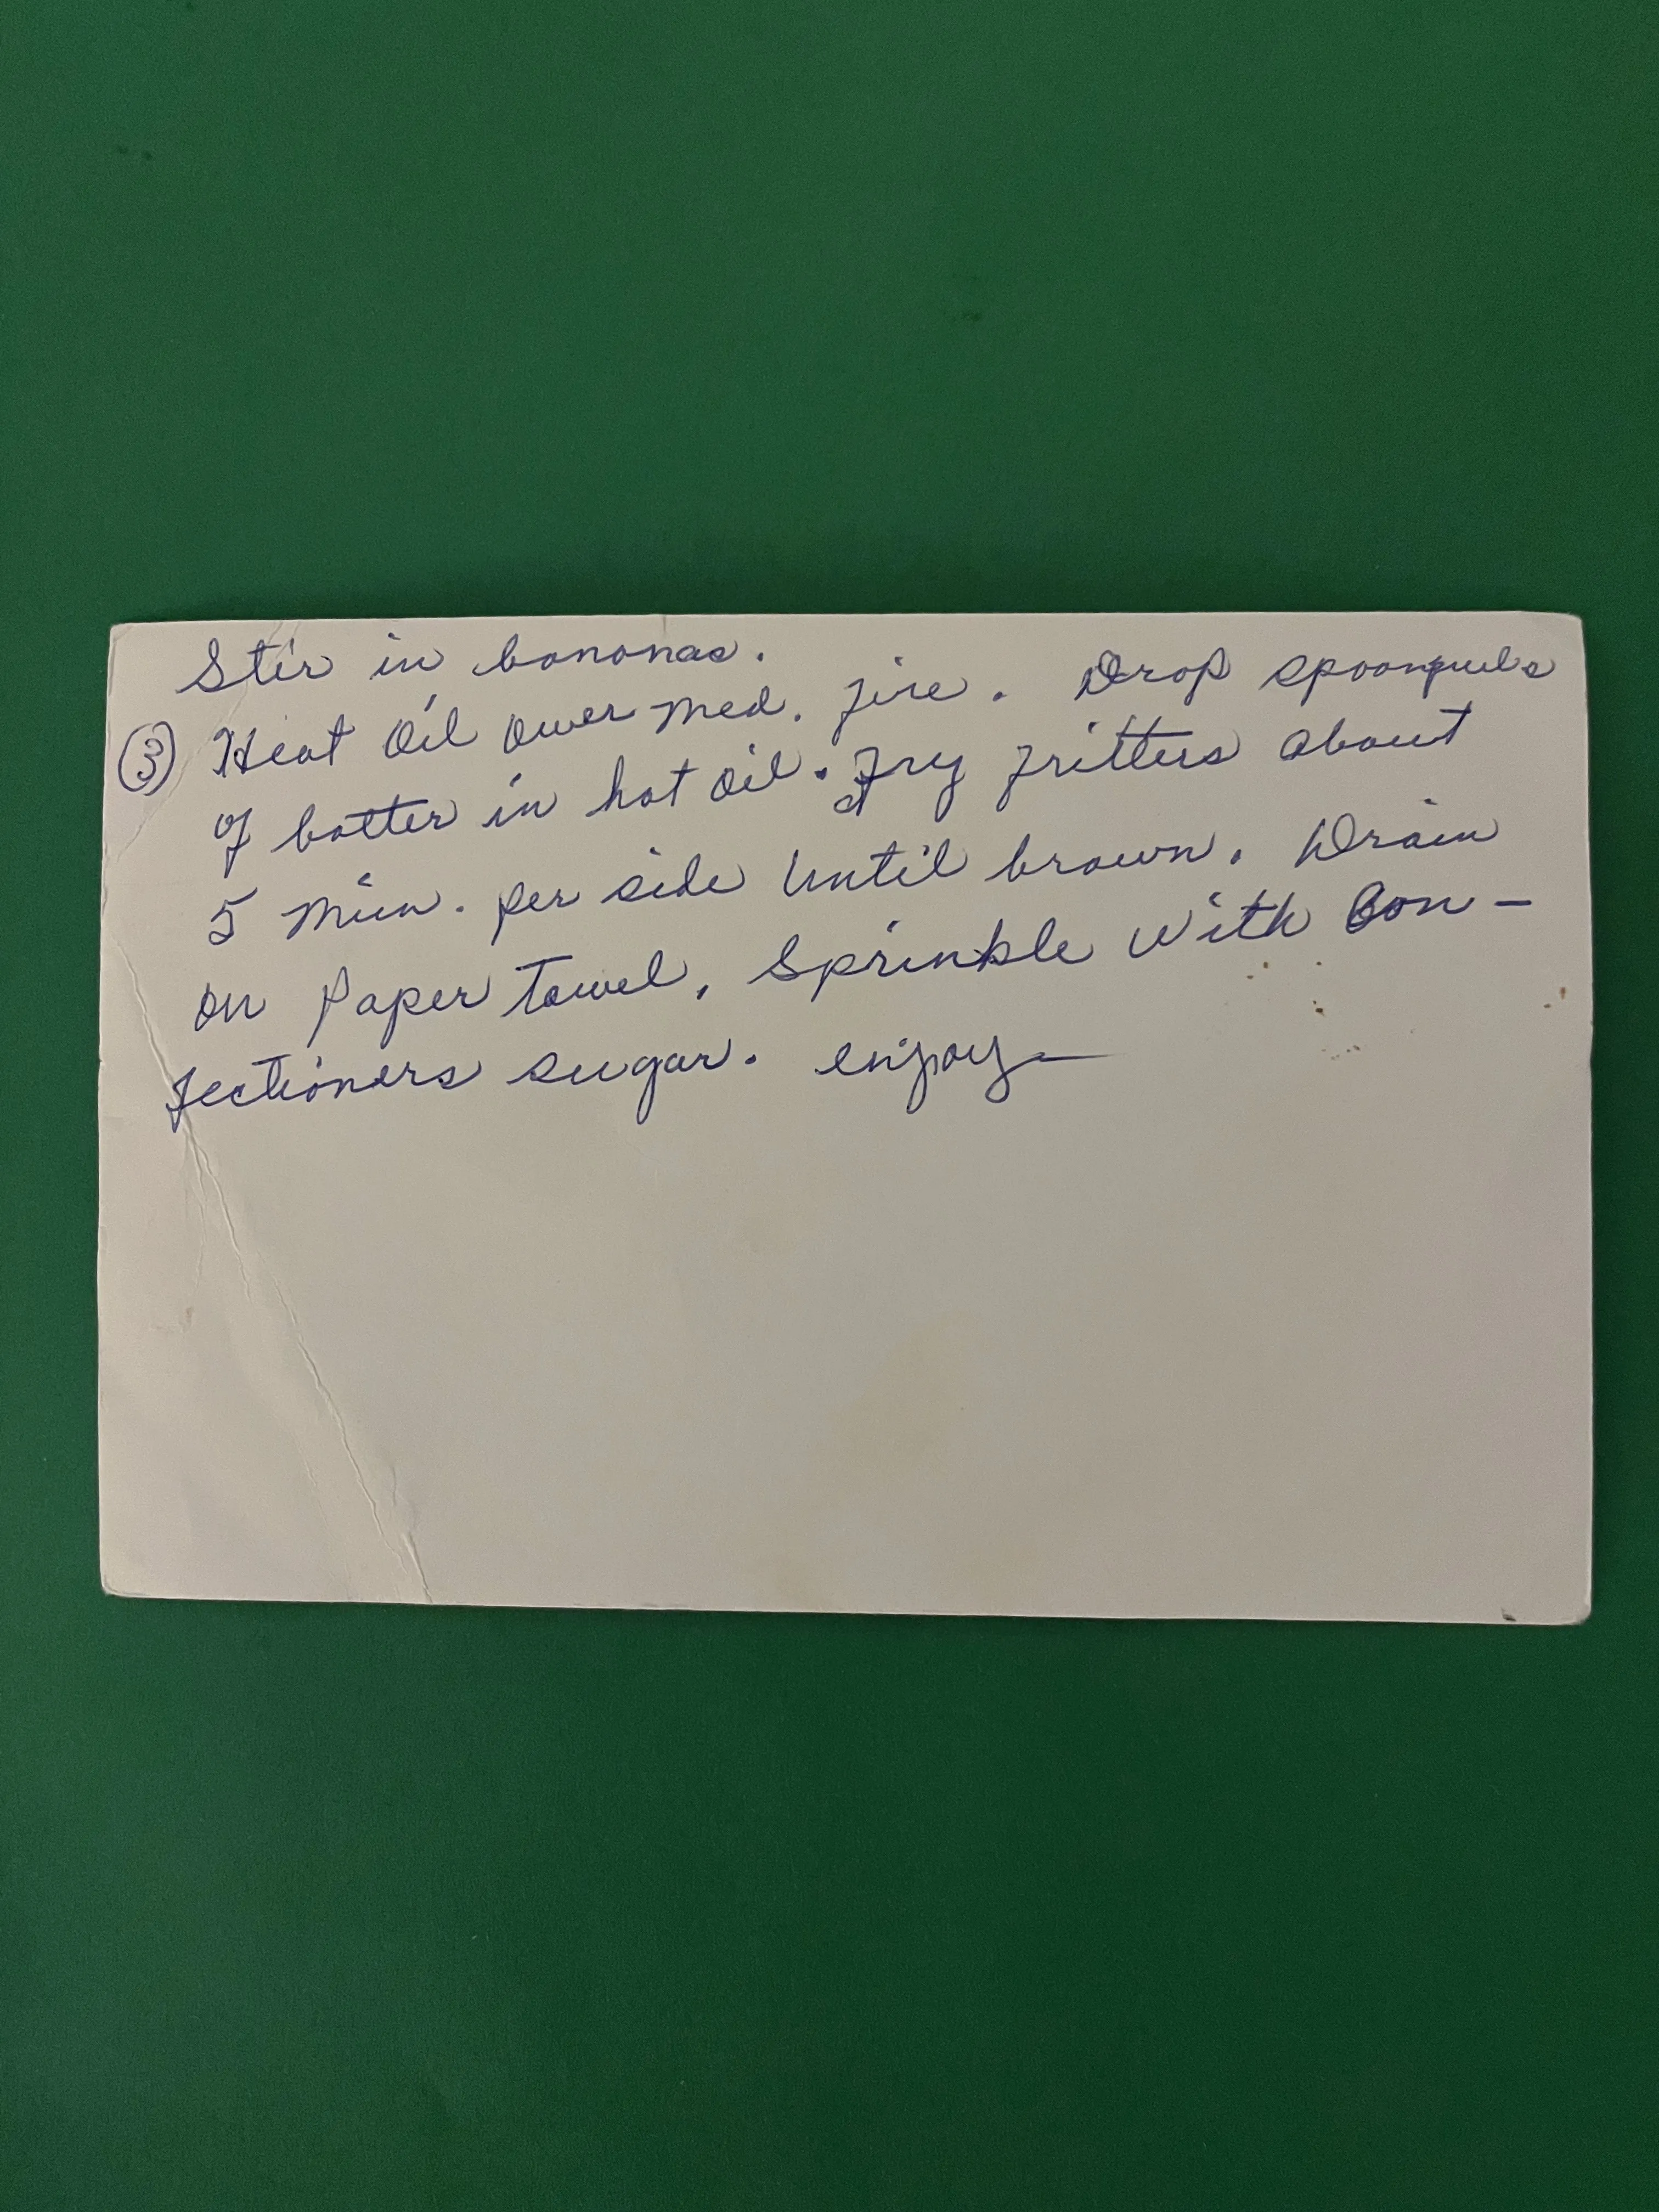 Stir in bananas.
③ Heat Oil over med. fire. Drop spoonfuls
of batter in hot oil. Fry fritters about
5 min. per side until brown. Drain
on paper towel, Sprinkle with Con-
fectioners sugar. enjoy—